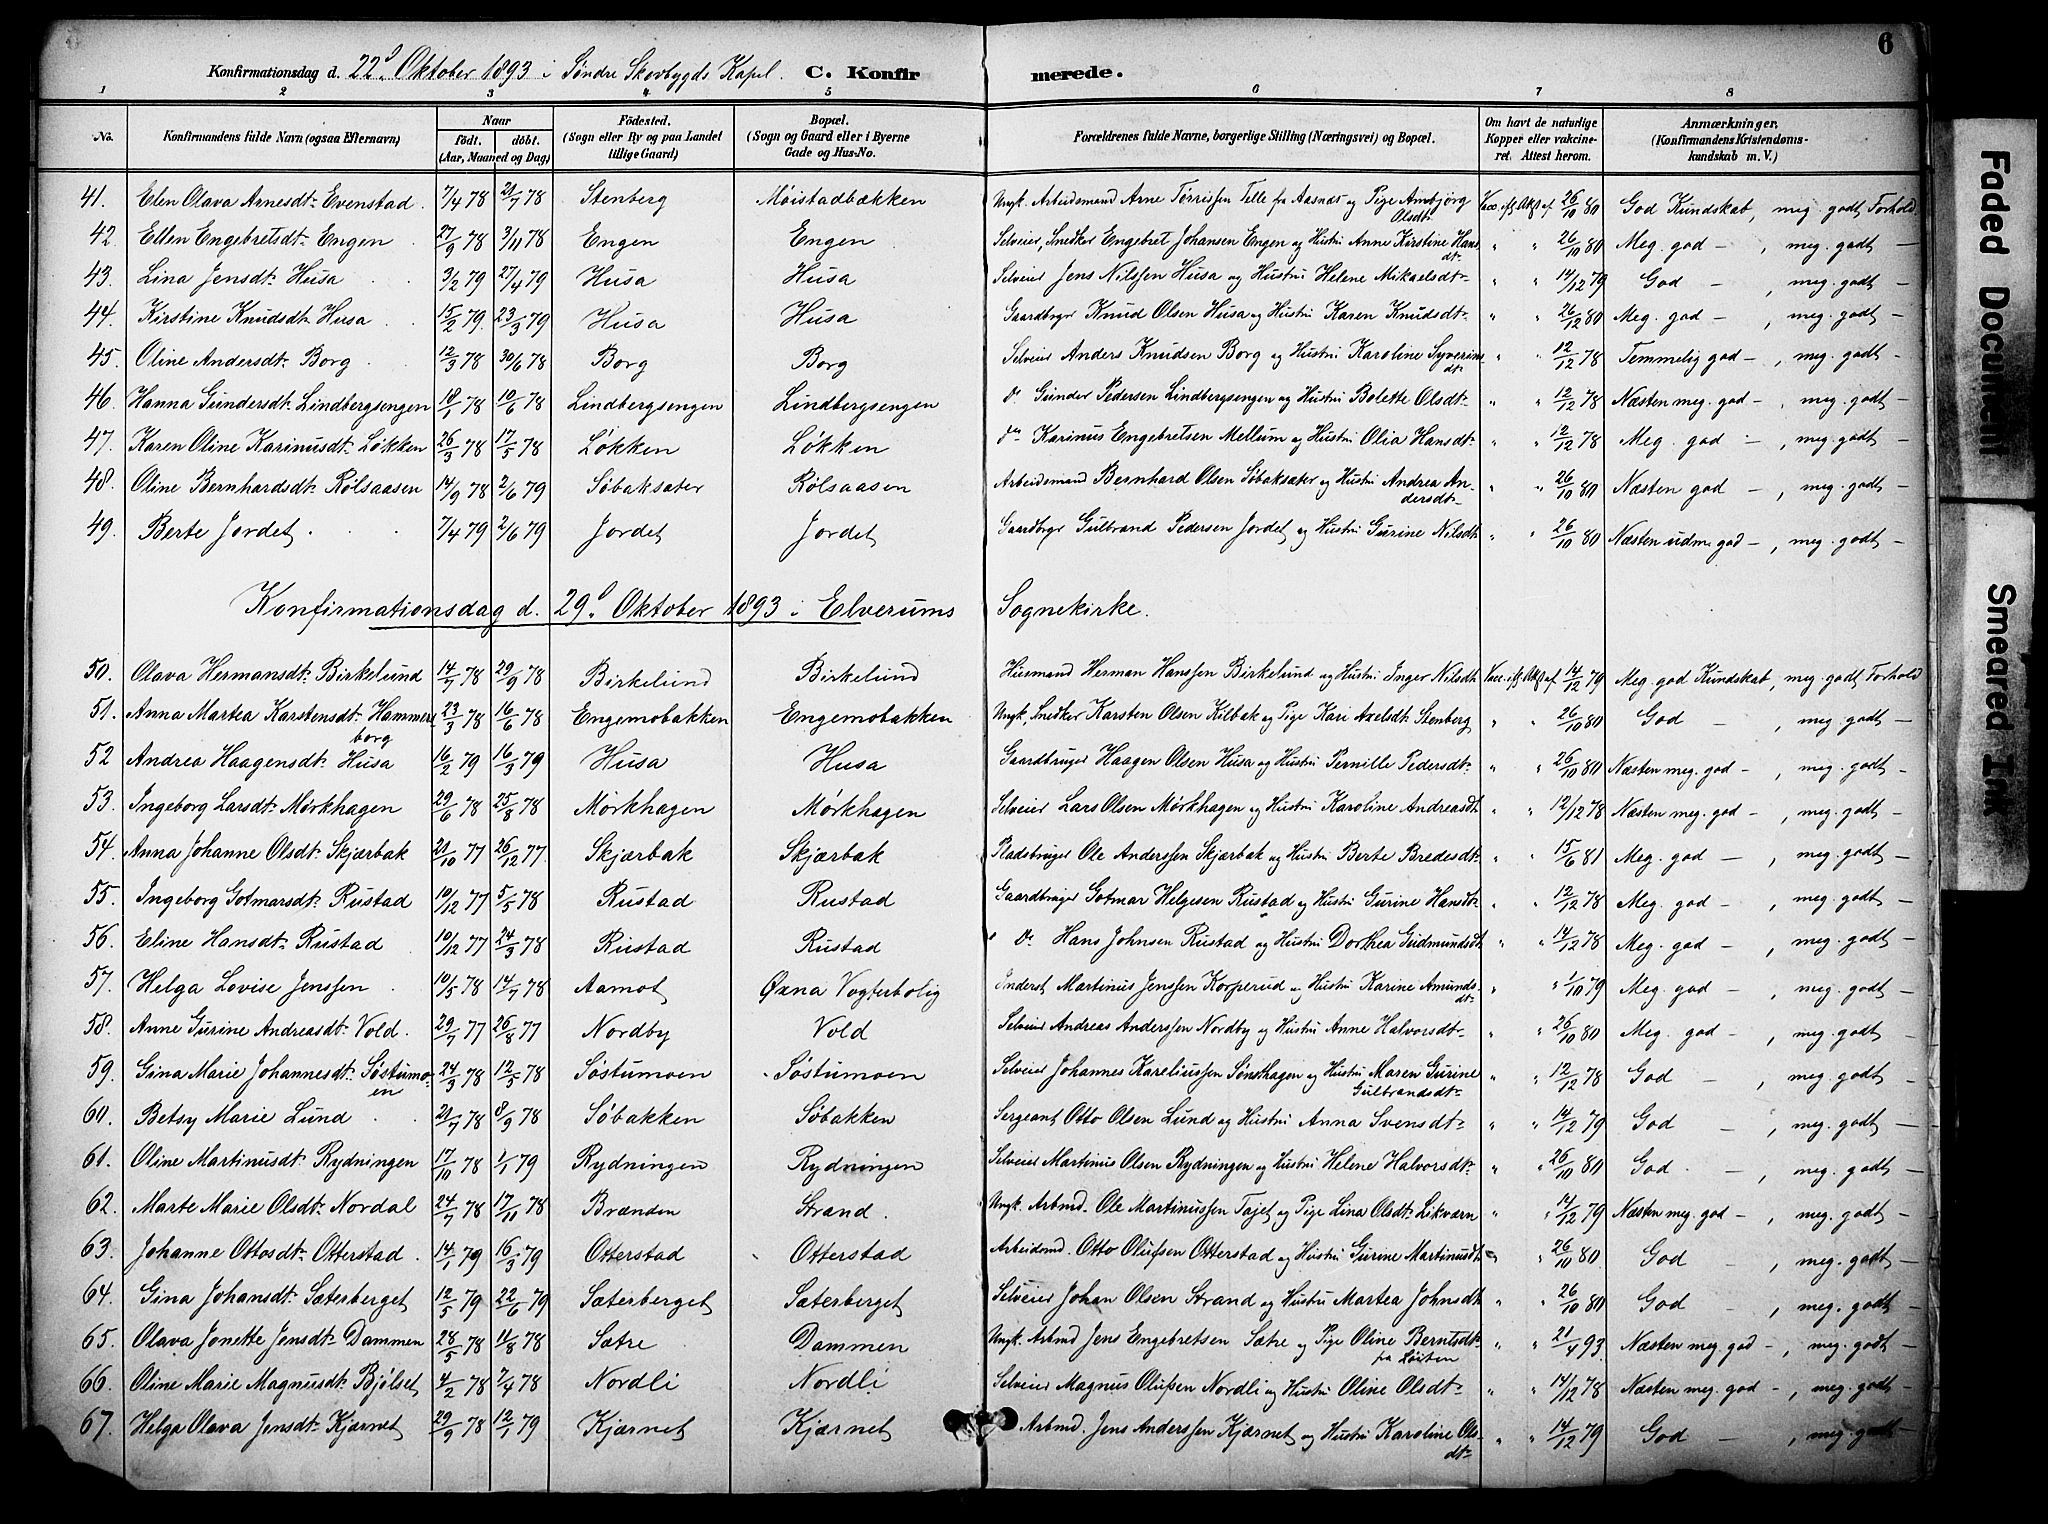 6
Konfirmationsdag d. 22d Oktober 1893 i Søndre Skovbygds Kapel. C. Konfirmerede.
1 2 3 4 5 6 7 8
No. Konfirmandens fulde Navn (ogsaa Efternavn) Naar født. døbt. (Aar, Maaned og Dag) Fødested. (Sogn eller By og paa Landet tillige Gaard) Bopæl. (Sogn og Gaard eller i Byerne Gade og Hus-No. Forældrenes fulde Navne, borgerlige Stilling (Næringsvei) og Bopæl. Om havt de naturlige Kopper eller vakcineret. Attest herom. Anmærkninger. (Konfirmandens Kristendomskundskab m. V.)
41. Elen Olava Arnesdt: Evenstad 7/4 78 21/7 78 Stenberg Møistadbækken Ungk. Arbeidsmand Arne Tørrissen Tille fra Aasnæs og Pige Ambjørg Olsdt: Vacc. ifg Atst af 26/10 80 God Kundskab, meg. godt Forhold
42. Ellen Engebretsdt: Engen 27/9 78 3/11 78 Engen Engen Selveier, Snedker Engebret Johansen Engen og Hustru Anne Kirstine Hansdt: " " 26/10 80 Meg. god — , meg. godt —
43. Lina Jensdt: Husa 3/2 79 27/4 79 Husa Husa Selveier Jens Nilssen Husa og Hustru Helene Mikaelsdt: " " 14/12 79 God — , meg. godt —
44. Kirstine Knudsdt: Husa 15/2 79 23/3 79 Husa Husa Gaardbrgr Knud Olsen Husa og Hustru Karen Knudsdt: " " 26/12 80 Meg. god — , meg. godt —
45. Oline Andersdt: Borg 12/3 78 30/6 78 Borg Borg Selveier Anders Knudsen Borg og Hustru Karoline Syverinsdt: " " 12/12 78 Temmelig god — , meg. godt —
46. Hanna Gundersdt: Lindbergsengen 18/1 78 10/6 78 Lindbergsengen Lindbergsengen do Gunder Pedersen Lindbergsengen og Hustru Bolette Olsdt: " " 12/12 78 Næsten meg. god — , meg. godt —
47. Karen Oline Karinusdt: Løkken 26/3 78 17/5 78 Løkken Løkken do Karinus Engebretsen Mellum og Hustru Olia Hansdt: " " 12/12 78 Meg. god — , meg. godt —
48. Oline Bernhardsdt: Rølsaasen 14/9 78 2/6 79 Søbaksæter Rølsaasen Arbeidsmand Bernhard Olsen Søbaksæter og Hustru Andrea Andersdt: " " 26/10 80 Næsten god — , meg. godt —
49. Berte Jordet 7/4 79 2/6 79 Jordet Jordet Gaardbrgr Gulbrand Pedersen Jordet og Hustru Gurine Nilsdt: " " 26/10 80 Næsten udm. god — , meg. godt —
Konfirmationsdag d. 29d Oktober 1893 i Elverums Sognekirke.
50. Olava Hermansdt: Birkelund 14/7 78 29/9 78 Birkelund Birkelund Husmand Herman Hanssen Birkelund og Hustru Inger Nilsdt: Vacc. ifg Atst af 14/12 79 Meg. god Kundskab, meg. godt Forhold
51. Anna Martea Karstensdt: Hammersborg 23/3 78 16/6 78 Engemobakken Engemobakken Ungk. Snedker Karsten Olsen Kilbak og Pige Kari Axelsdt: Stenberg " " 26/10 80 God — , meg. godt —
52 Andrea Haagensdt: Husa 16/2 79 16/3 79 Husa Husa Gaardbruger Haagen Olsen Husa og Hustru Pernille Pedersdt: " " 26/10 80 Næsten meg. god — , meg. godt —
53. Ingeborg Larsdt: Mørkhagen 29/6 78 25/8 78 Mørkhagen Mørkhagen Selveier Lars Olsen Mørkhagen og Hustru Karoline Andreasdt: " " 12/12 78 Næsten meg. god — , meg. godt —
54. Anna Johanne Olsdt: Skjærbak 21/10 77 26/12 77. Skjærbak Skjærbak Pladsbruger Ole Anderssen Skjærbak og Hustru Berte Bredesdt: " " 15/6 81 Meg. god — , meg. godt —
55. Ingeborg Gotmarsdt: Rustad 10/12 77 5/5 78 Rustad Rustad Gaardbruger Gotmar Helgesen Rustad og Hustru Gurine Hansdt: " " 12/12 78 Meg. god — , meg. godt —
56. Eline Hansdt: Rustad 10/12 77 24/3 78 Rustad Rustad do Hans Johnsen Rustad og Hustru Dorthea Gudmundsdt: " " 14/12 78 Meg. god — , meg. godt —
57. Helga Lovise Jenssen 10/5 78 14/7 78 Aamot Øxna Vogterbolig Inderst Martinus Jenssen Korperud og Hustru Karine Amundsdt: " " 1/10 79 Meg. god — , meg. godt —
58. Anne Gurine Andreasdt: Vold 29/7 77 26/8 77 Nordby Vold Selveier Andreas Anderssen Nordby og Hustru Anne Halvorsdt: " " 26/10 80 Meg. god — , meg. godt —
59. Gina Marie Johannesdt: Søstumoen 24/3 78 12/5 78 Søstumoen Søstumoen Selveier Johannes Kareliussen Sønsthagen og Hustru Maren Gurine Gulbrandsdt: " " 12/12 78 God — , meg. godt —
60. Betsy Marie Lund 21/7 78 8/9 78 Søbakken Søbakken Sergeant Otto Olsen Lund og Hustru Anna Svensdt: " " 14/12 79 God — , meg. godt —
61. Oline Martinusdt: Rydningen 17/10 78 1/1 79 Rydningen Rydningen Selveier Martinus Olsen Rydningen og Hustru Helene Halvorsdt: " " 26/10 80 God — , meg. godt —
62. Marte Marie Olsdt: Nordal 24/7 78 17/11 78 Brænden Strand. Ungk. Arbmd. Ole Martinussen Tajet og Pige Lina Olsdt: Likværn " " 14/12 79 Næsten meg. god — , meg. godt —
63. Johanne Ottosdt: Otterstad 14/1 79 16/3 79 Otterstad Otterstad Arbeidsmd. Otto Olufsen Otterstad og Hustru Gurine Martinusdt: " 26/10 80 God — , meg. godt —
64. Gina Johansdt: Sæterberget 12/5 79 22/6 79 Sæterberget Sæterberget Selveier Johan Olsen Strand og Hustru Martea Johnsdt: " " 26/10 80 God — , meg. godt —
65. Olava Jonette Jensdt: Dammen 28/5 78 11/8 78 Sætre Dammen Ungk. Arbmd Jens Engebretsen Sætre og Pige Oline Berntsdt: fra Løiten " " 21/4 93. Næsten meg. god — , meg. godt —
66. Oline Marie Magnusdt: Bjølset 4/2 78 7/4 78 Nordli Nordli Selveier Magnus Olufsen Nordli og Hustru Oline Olsdt: " " 14/12 78 Næsten meg. god — , meg. godt —
67. Helga Olava Jensdt: Kjærnet 29/9 78 12/1 79 Kjærnet Kjærnet Arbmd. Jens Anderssen Kjærnet og Hustru Karoline Olsdt: " " 14/12 79 God — , meg. godt —
Faded Document
Smeared Ink